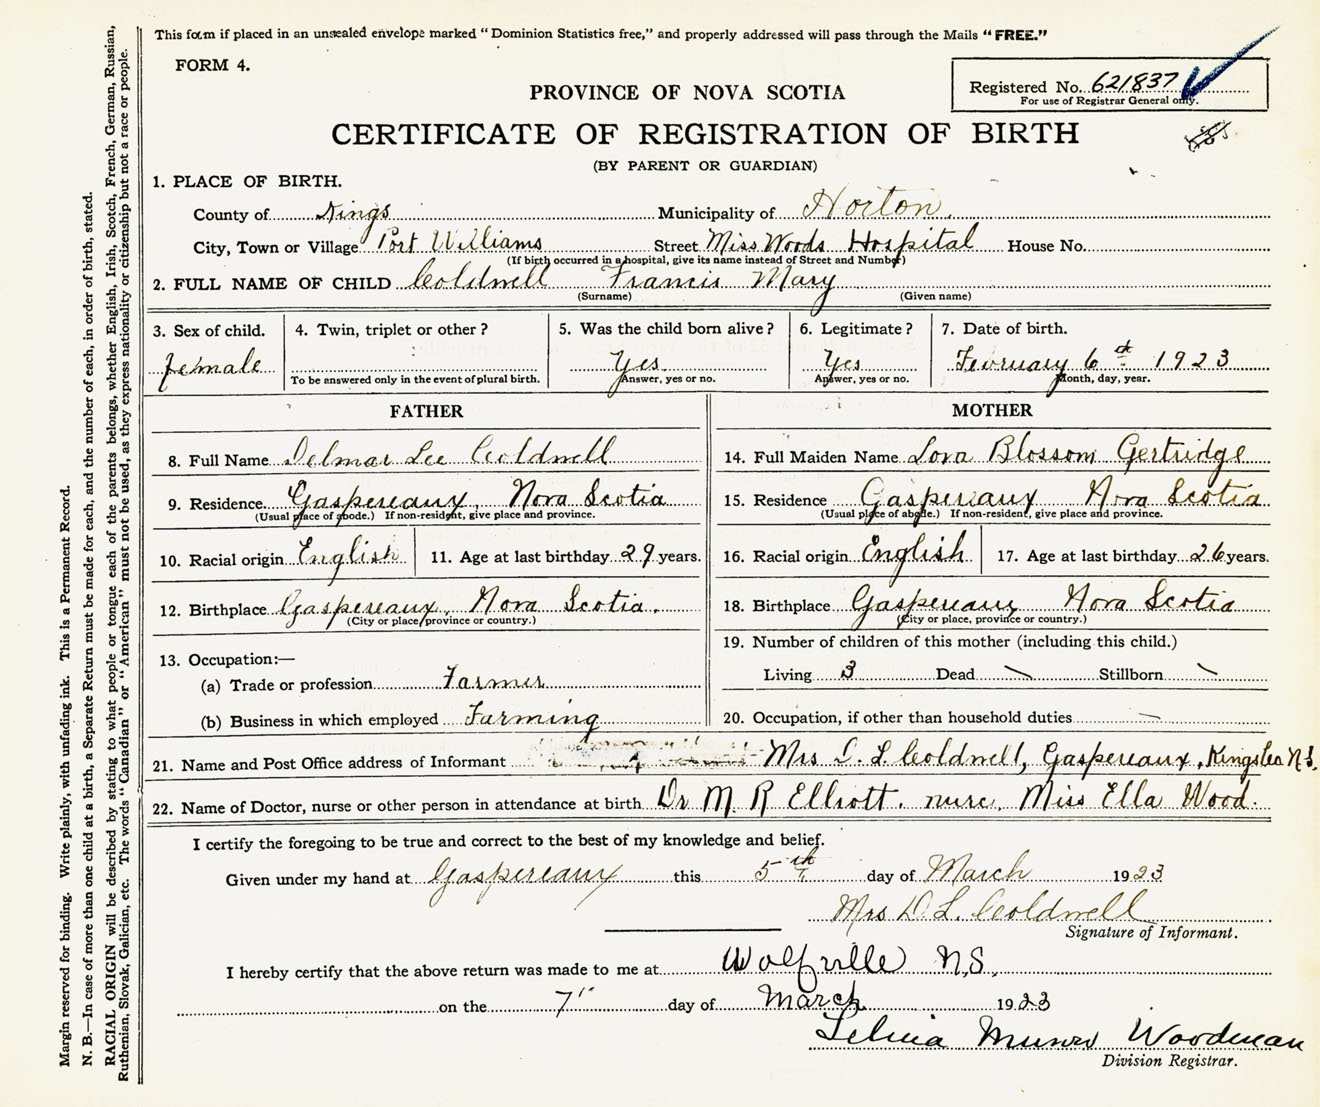 This form if placed in an unsealed envelope marked "Dominion Statistics free," and properly addressed will pass through the Mails "FREE."
FORM 4.
Registered No. 621837
For use of Registrar General only.
PROVINCE OF NOVA SCOTIA
CERTIFICATE OF REGISTRATION OF BIRTH
(BY PARENT OR GUARDIAN)
1. PLACE OF BIRTH.
County of Kings Municipality of Horton
City, Town or Village Port Williams Street Miss Woods Hospital House No.
(If birth occurred in a hospital, give its name instead of Street and Number)
2. FULL NAME OF CHILD Coldwell Francis Mary
(Surname) (Given name)
3. Sex of child. 4. Twin, triplet or other? 5. Was the child born alive? 6. Legitimate? 7. Date of birth.
female Yes Yes February 6th 1923
To be answered only in the event of plural birth. Answer, yes or no. Answer, yes or no. Month, day, year.
FATHER MOTHER
8. Full Name Delmar Lee Coldwell 14. Full Maiden Name Lora Blossom Gertridge
9. Residence Gaspereaux, Nova Scotia 15. Residence Gaspereaux Nova Scotia
(Usual place of abode.) If non-resident, give place and province. (Usual place of abode.) If non-resident, give place and province.
10. Racial origin English 11. Age at last birthday 29 years. 16. Racial origin English 17. Age at last birthday 26 years.
12. Birthplace Gaspereaux, Nova Scotia. 18. Birthplace Gaspereaux Nova Scotia
(City or place, province or country.) (City or place, province or country.)
13. Occupation:— 19. Number of children of this mother (including this child.)
(a) Trade or profession Farmer Living 3 Dead \ Stillborn \
(b) Business in which employed Farming 20. Occupation, if other than household duties —
21. Name and Post Office address of Informant Mrs. D. L. Coldwell, Gaspereaux, Kings Co. N.S.
22. Name of Doctor, nurse or other person in attendance at birth Dr M. R Elliott. nurse, Miss Ella Wood.
I certify the foregoing to be true and correct to the best of my knowledge and belief.
Given under my hand at Gaspereaux this 5th day of March 1923
Mrs D. L. Coldwell
Signature of Informant.
I hereby certify that the above return was made to me at Wolfville N.S.
on the 7" day of March 1923
Munro Woodman
Division Registrar.
Margin reserved for binding. Write plainly, with unfading ink. This is a Permanent Record.
N. B.—In case of more than one child at a birth, a Separate Return must be made for each, and the number of each, in order of birth, stated.
RACIAL ORIGIN will be described by stating to what people or tongue each of the parents belongs, whether English, Irish, Scotch, French, German, Russian,
Ruthenian, Slovak, Galician, etc. The words "Canadian" or "American" must not be used, as they express nationality or citizenship but not a race or people.